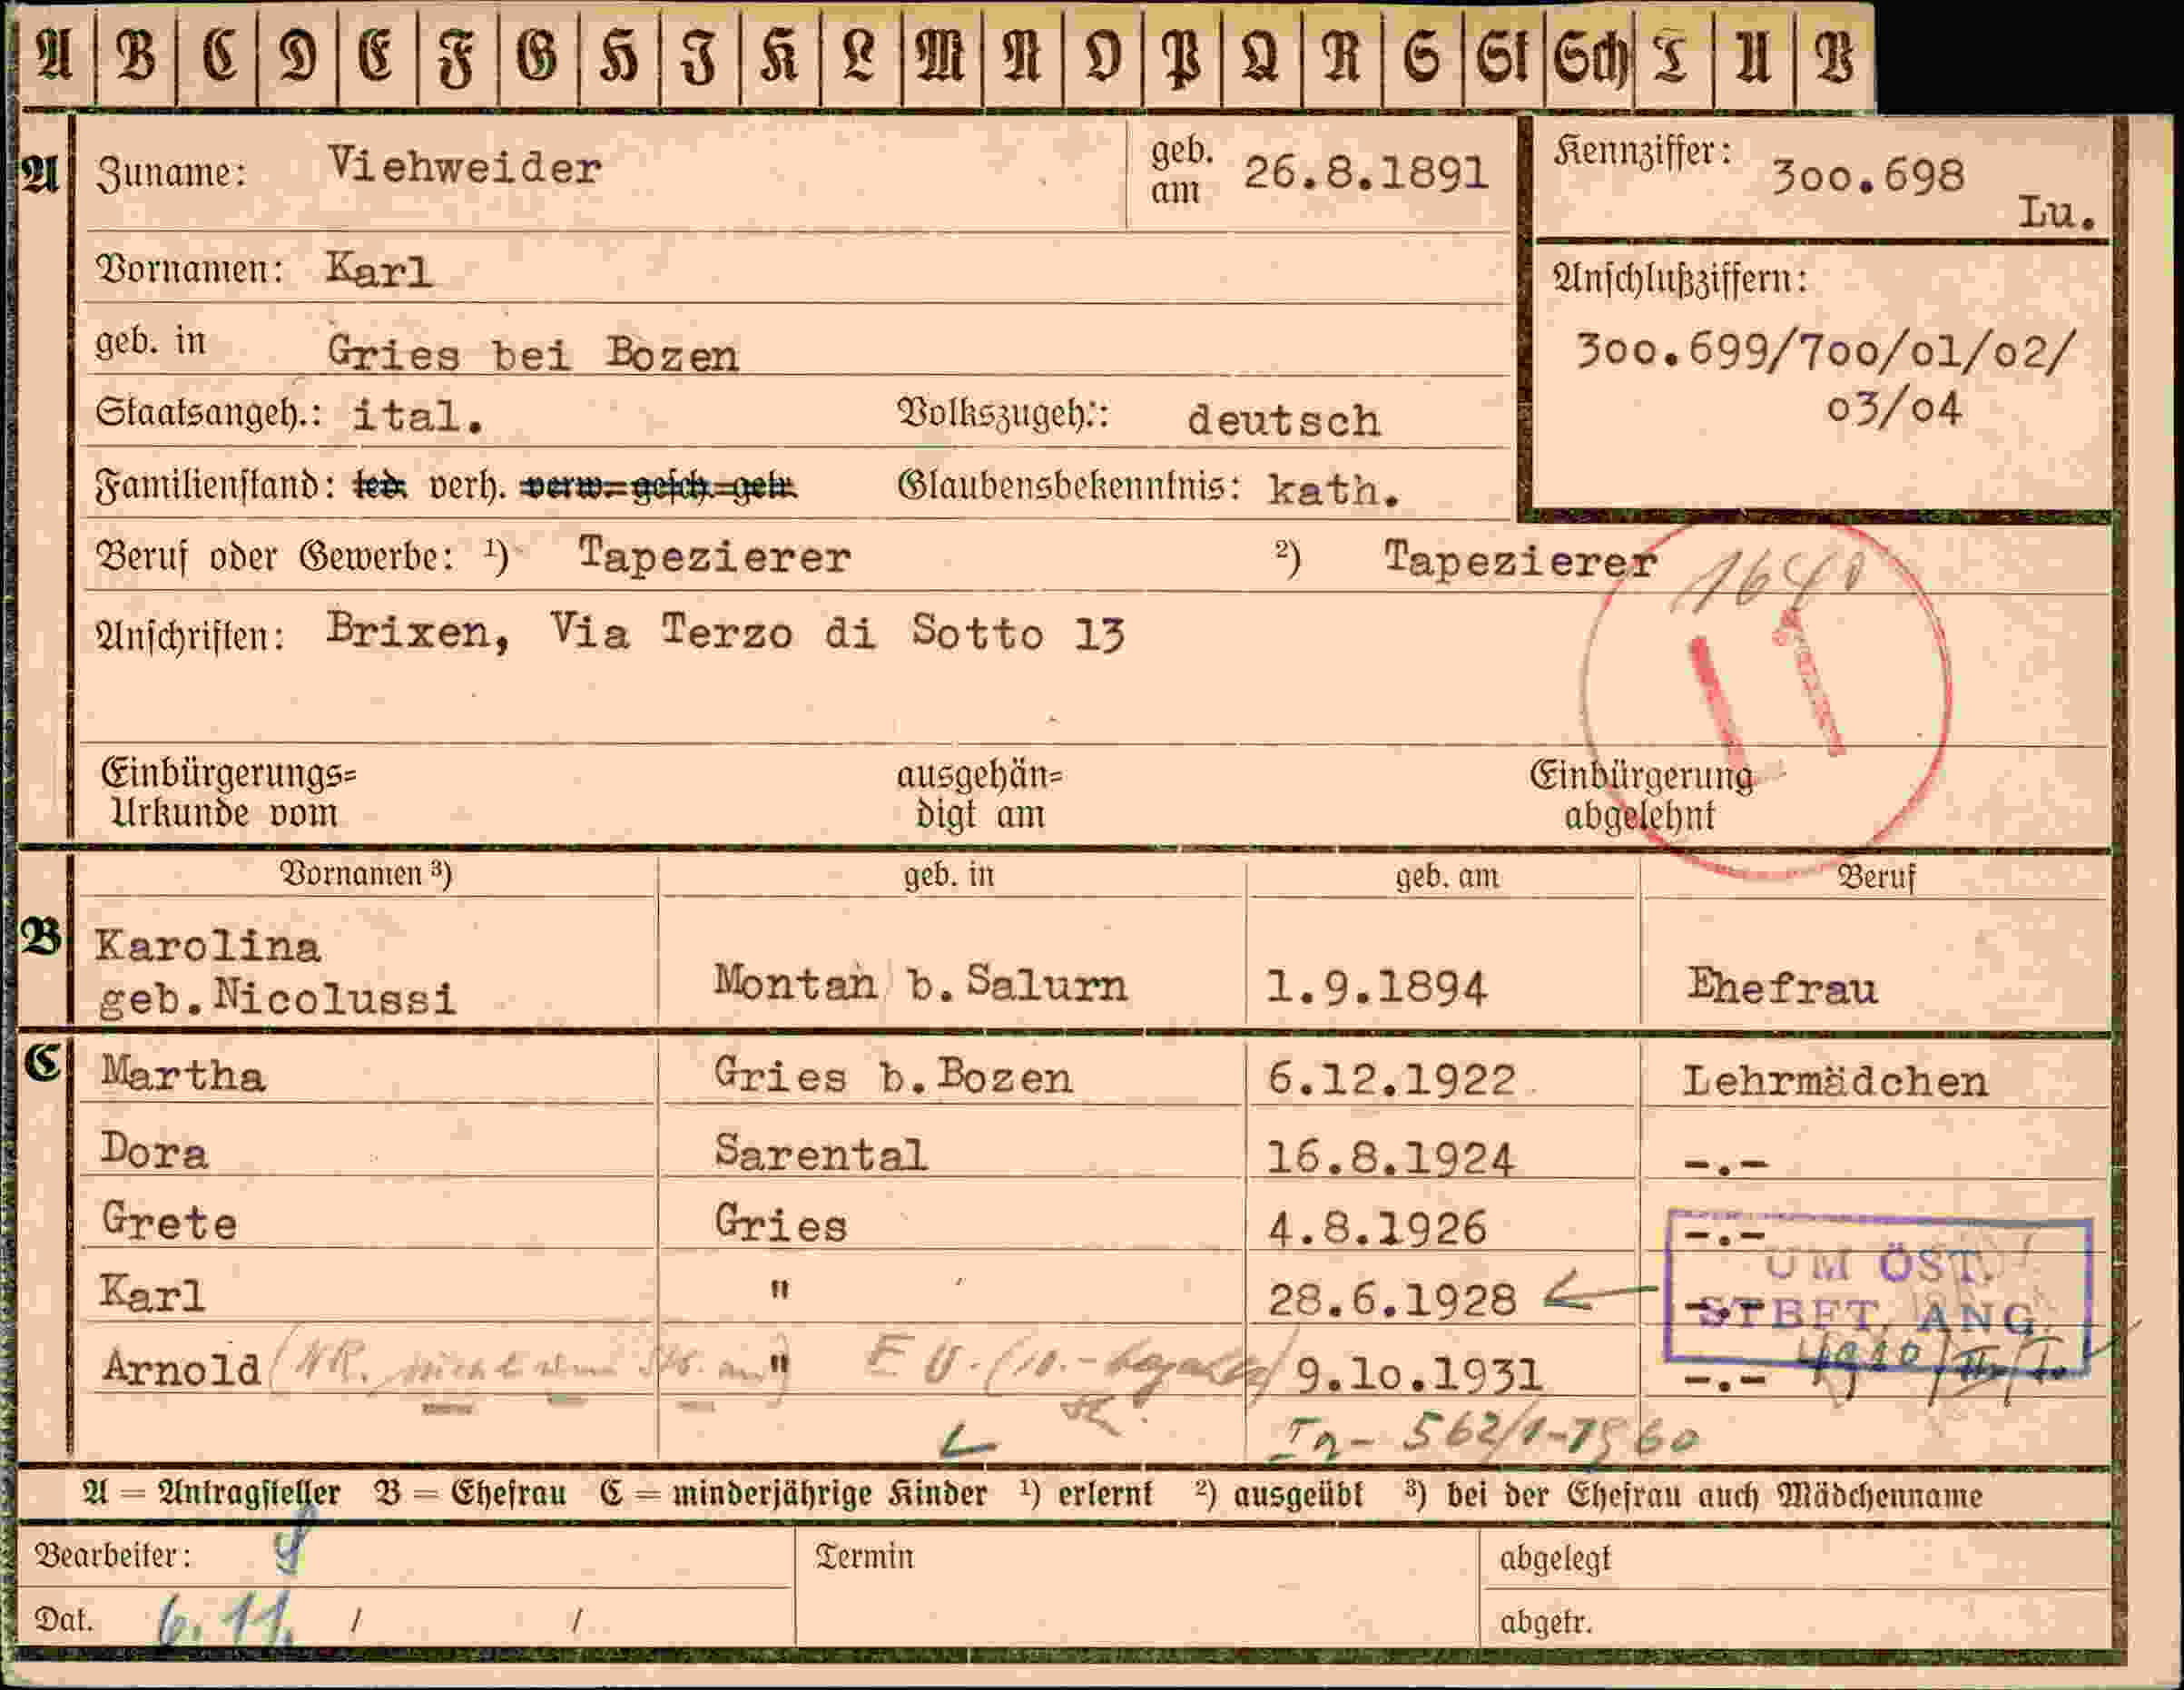 A B C D E F G H I K L M N O P Q R S St Sch T U V
A Zuname: Viehweider geb. am 26.8.1891
Kennziffer: 300.698
Lu.
Vornamen: Karl
Anschlußziffern:
geb. in Gries bei Bozen
300.699/700/01/02/
03/04
Staatsangeh.: ital. Volkszugeh.: deutsch
Familienstand: led. verh. verw. gesch. getr. Glaubensbekenntnis: kath.
Beruf oder Gewerbe: ¹) Tapezierer ²) Tapezierer
Anschriften: Brixen, Via Terzo di Sotto 13
11
Einbürgerungs= ausgehän= Einbürgerung
Urkunde vom digt am abgelehnt
Vornamen ³) geb. in geb. am Beruf
B Karolina
geb.Nicolussi Montan b.Salurn 1.9.1894 Ehefrau
C Martha Gries b.Bozen 6.12.1922 Lehrmädchen
Dora Sarental 16.8.1924 -.-
Grete Gries 4.8.1926 -.-
UM ÖST.
Karl " 28.6.1928 -.-
STBFT. ANG.
Arnold " 9.10.1931 -.-
562/1-
A = Antragsteller B = Ehefrau C = minderjährige Kinder ¹) erlernt ²) ausgeübt ³) bei der Ehefrau auch Mädchenname
Bearbeiter: Termin abgelegt
Dat. 6.11. / / abgetr.